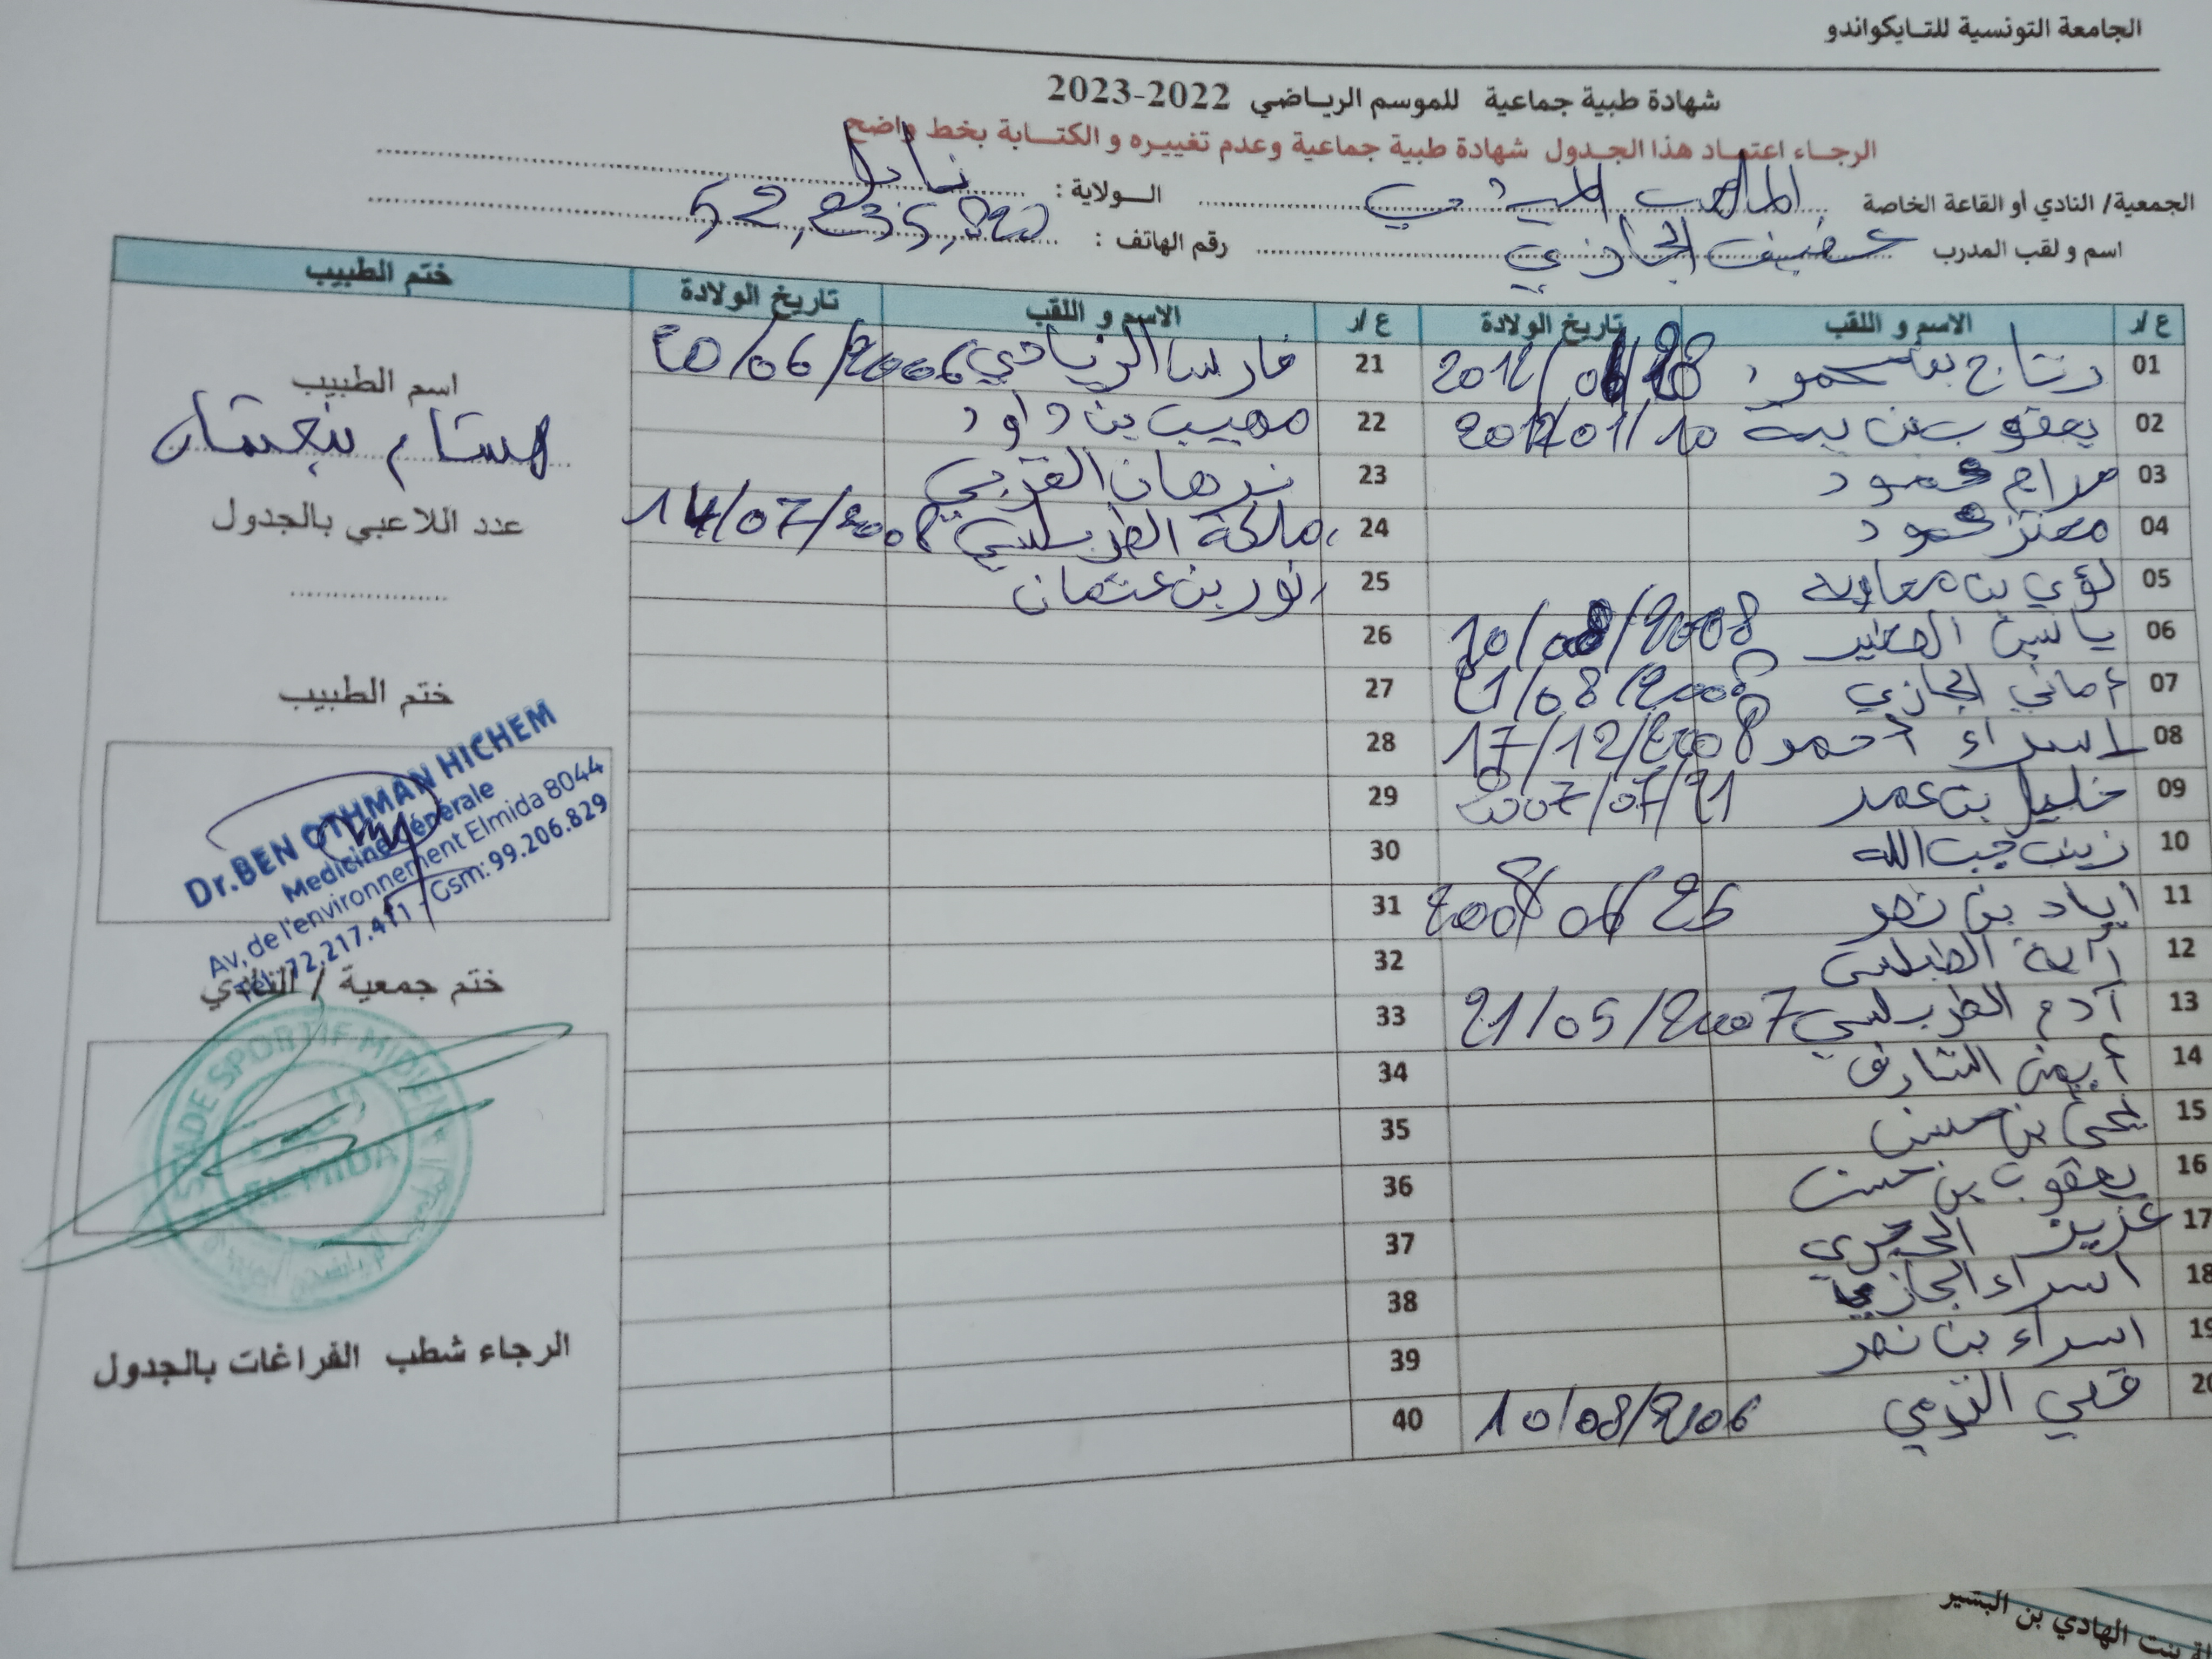 الجامعة التونسية للتايكواندو
شهادة طبية جماعية للموسم الرياضي 2022-2023
الرجاء اعتماد هذا الجدول شهادة طبية جماعية وعدم تغييره و الكتابة بخط واضح
الجمعية/ النادي أو القاعة الخاصة الملعب الميدي الولاية : نابل
اسم و لقب المدرب عفيف الجازي رقم الهاتف :
ع/ر الاسم و اللقب تاريخ الولادة ع/ر الاسم و اللقب تاريخ الولادة ختم الطبيب
01 21 فارس الزيادي 20/06/2006
02 يعقوب بن بية 10/01/2012 22 مهيب بن داود
03 مرام حمود 23 نرهان القزبي
04 معتز حمود 24 مالكة الطرابلسي 14/07/2008
05 لؤي بن معاوية 25 نور بن عثمان
06 ياسين 10/08/2008 26
07 أماني الجازي 21/08/2008 27
08 اسراء أحمد 17/12/2008 28
09 خليل بن عمر 21/07/2007 29
10 زينب جب الله 30
11 اياد بن نصر 25/06/2008 31
12 آية 32
13 آدم الطرابلسي 21/05/2007 33
14 أيمن الشارف 34
15 يحيى بن حسين 35
16 يعقوب بن حسن 36
17 عزيز 37
18 اسراء الجازي 38
19 اسراء بن نصر 39
20 قصي 10/08/2006 40
اسم الطبيب
هشام بنعثمان
عدد اللاعبي بالجدول
ختم الطبيب
Dr.BEN OTHMAN HICHEM
Medicine Générale
Av, de l'environnement Elmida 8044
Tél: 72.217.411 - Gsm: 99.206.829
ختم جمعية / النادي
STADE SPORTIF MIDIEN
EL MIDA
الرجاء شطب الفراغات بالجدول
بنت الهادي بن البشير